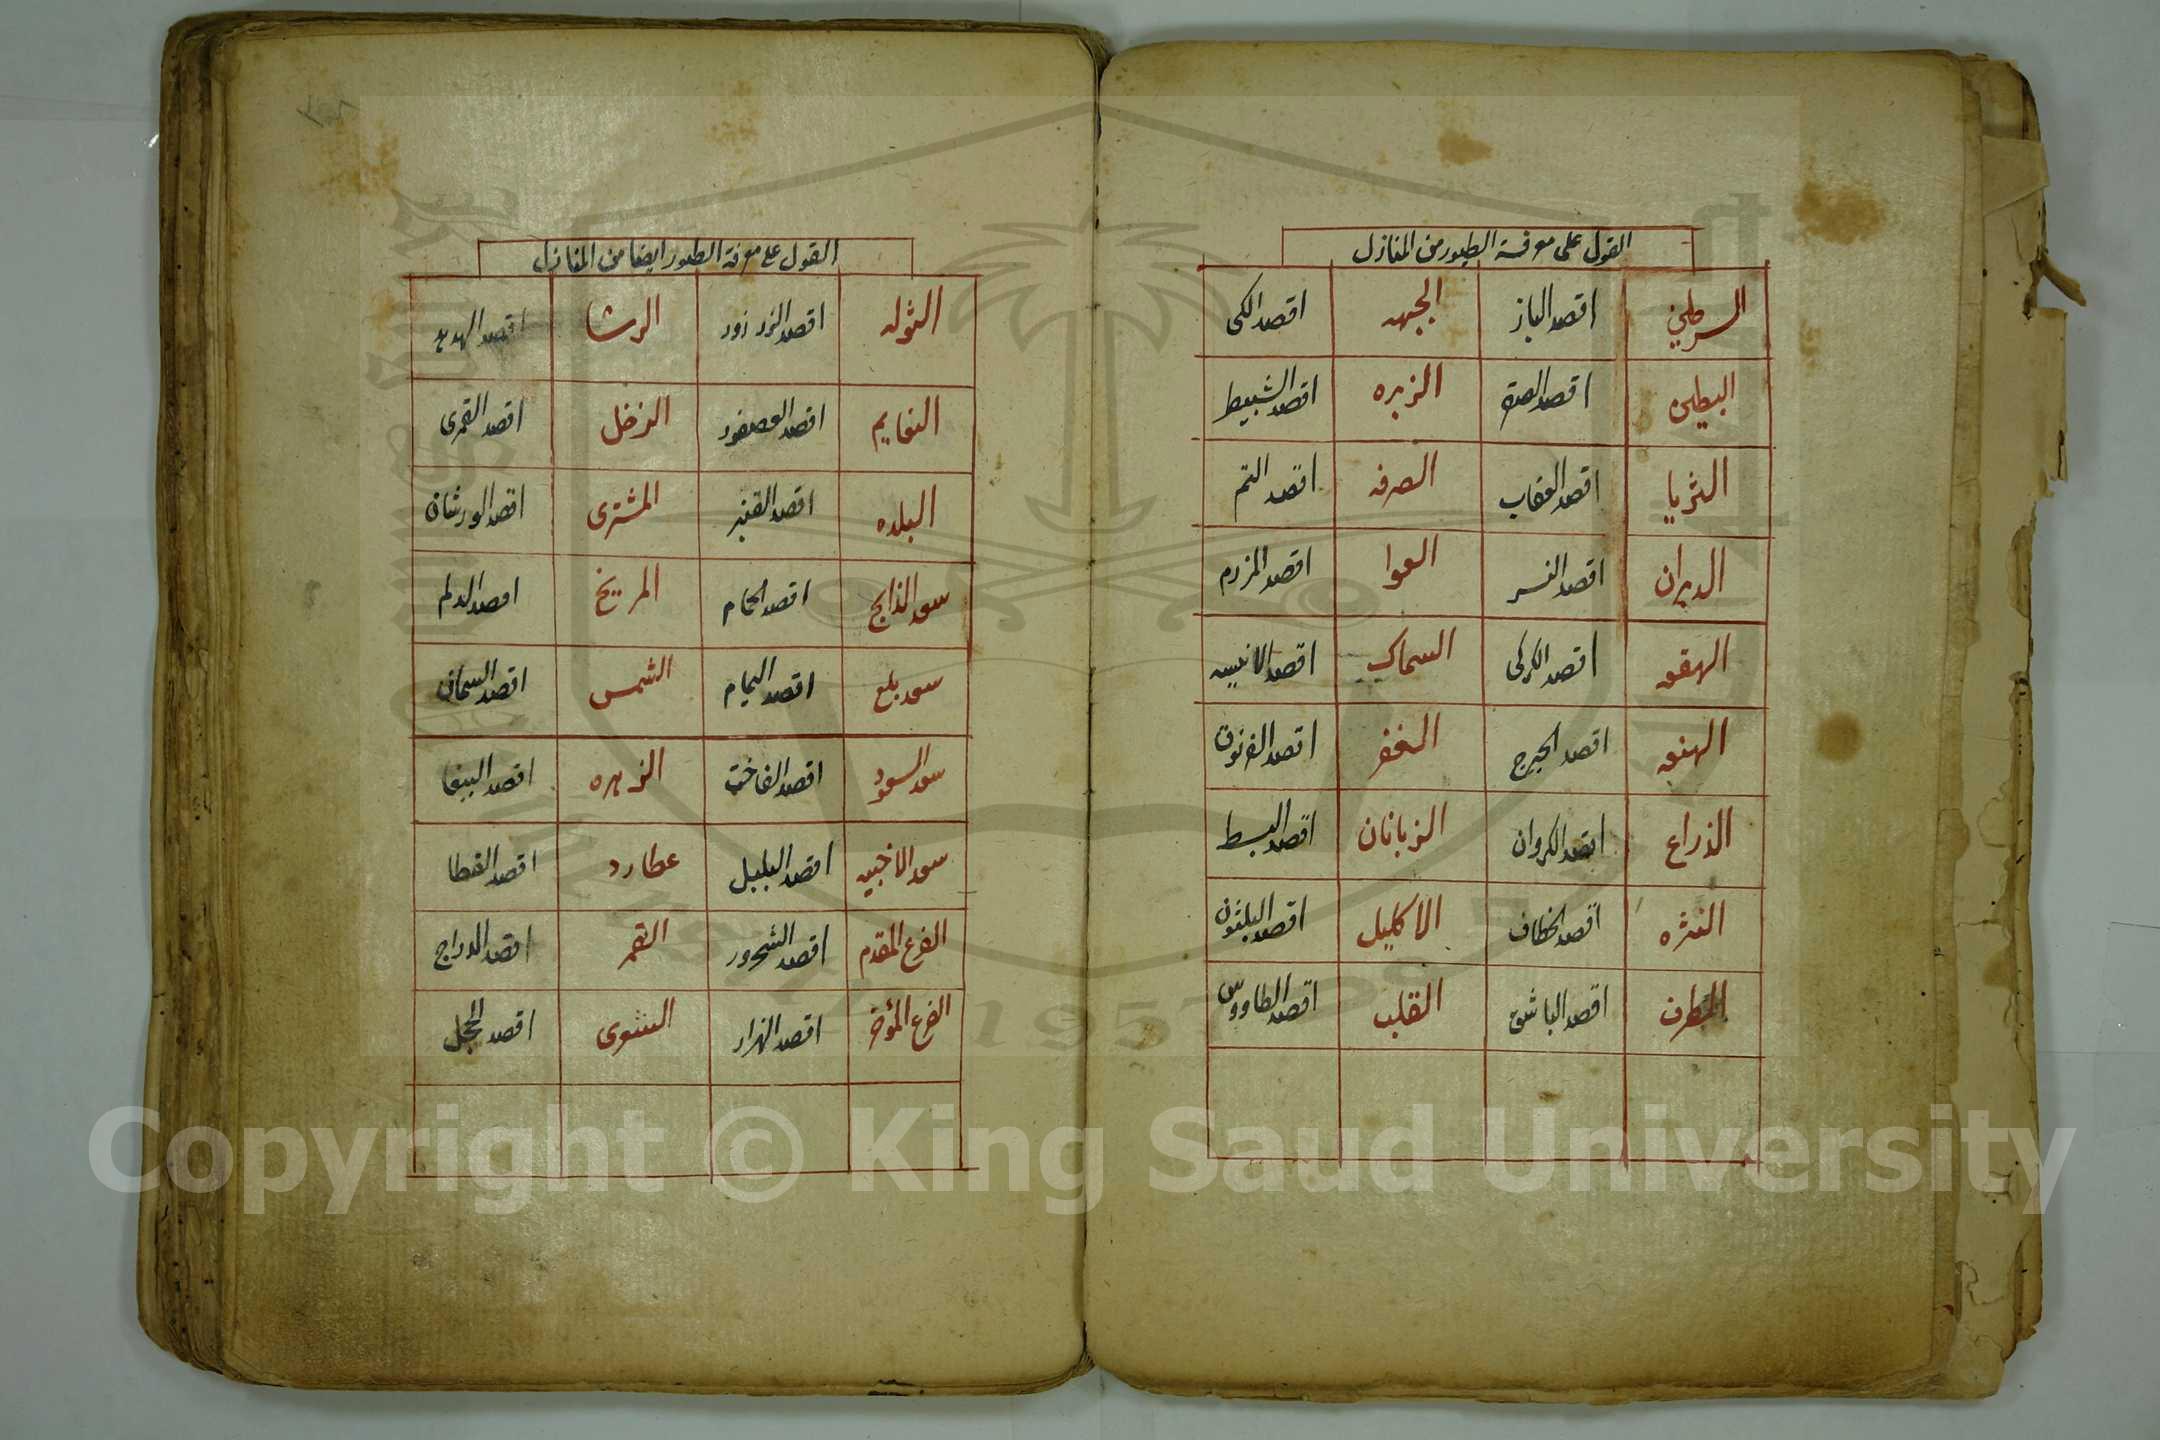 القول على معرفة الطيور من المنازل
السرطين اقصد الباز الجبهه اقصد الكى
البطين اقصد الصقر الزبره اقصد الشبيط
الثريا اقصد العقاب الصرفه اقصد التم
الدبران اقصد النسر العوا اقصد المرزم
الهقعه اقصد الكركى السماك اقصد الانيسه
الهنعه اقصد الحبرج الغفر اقصد الغرنوق
الذراع اقصد الكروان الزبانان اقصد البط
النثره اقصد الخطاف الاكليل اقصد البلشون
الطرف اقصد الباشق القلب اقصد الطاووس
القول على معرفة الطيور ايضا من المنازل
الشوله اقصد الزرزور الرشا اقصد الهدهد
النعايم اقصد العصفور الزحل اقصد القمرى
البلده اقصد القنبر المشترى اقصد الورشان
سعد الذابح اقصد الحمام المريخ اقصد الدلم
سعد بلع اقصد اليمام الشمس اقصد السمان
سعد السعود اقصد الفاخت الزهره اقصد الببغا
سعد الاخبيه اقصد البلبل عطارد اقصد القطا
الفرع المقدم اقصد الشحرور القمر اقصد الدراج
الفرع المؤخر اقصد الهزار السوى اقصد الحجل
1957
Copyright © King Saud University